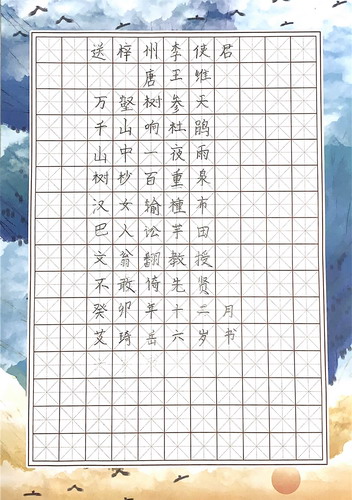 送梓州李使君
唐王维
万壑树参天
千山响杜鹃
山中一夜雨
树杪百重泉
汉女输橦布
巴人讼芋田
文翁翻教授
不敢倚先贤
癸卯年十二月
艾琦岳六岁书